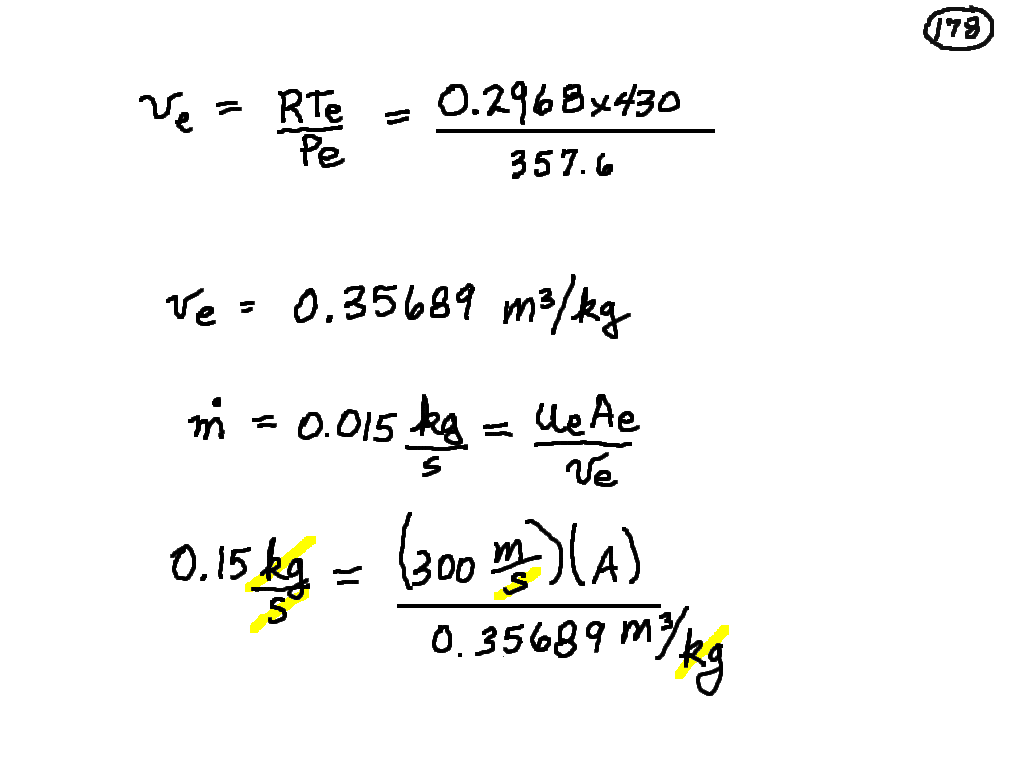 178
ve = RTe/Pe = 0.2968x430/357.6
ve = 0.35689 m³/kg
ṁ = 0.015 kg/s = ueAe/ve
0.15 kg/s = (300 m/s)(A)/0.35689 m³/kg